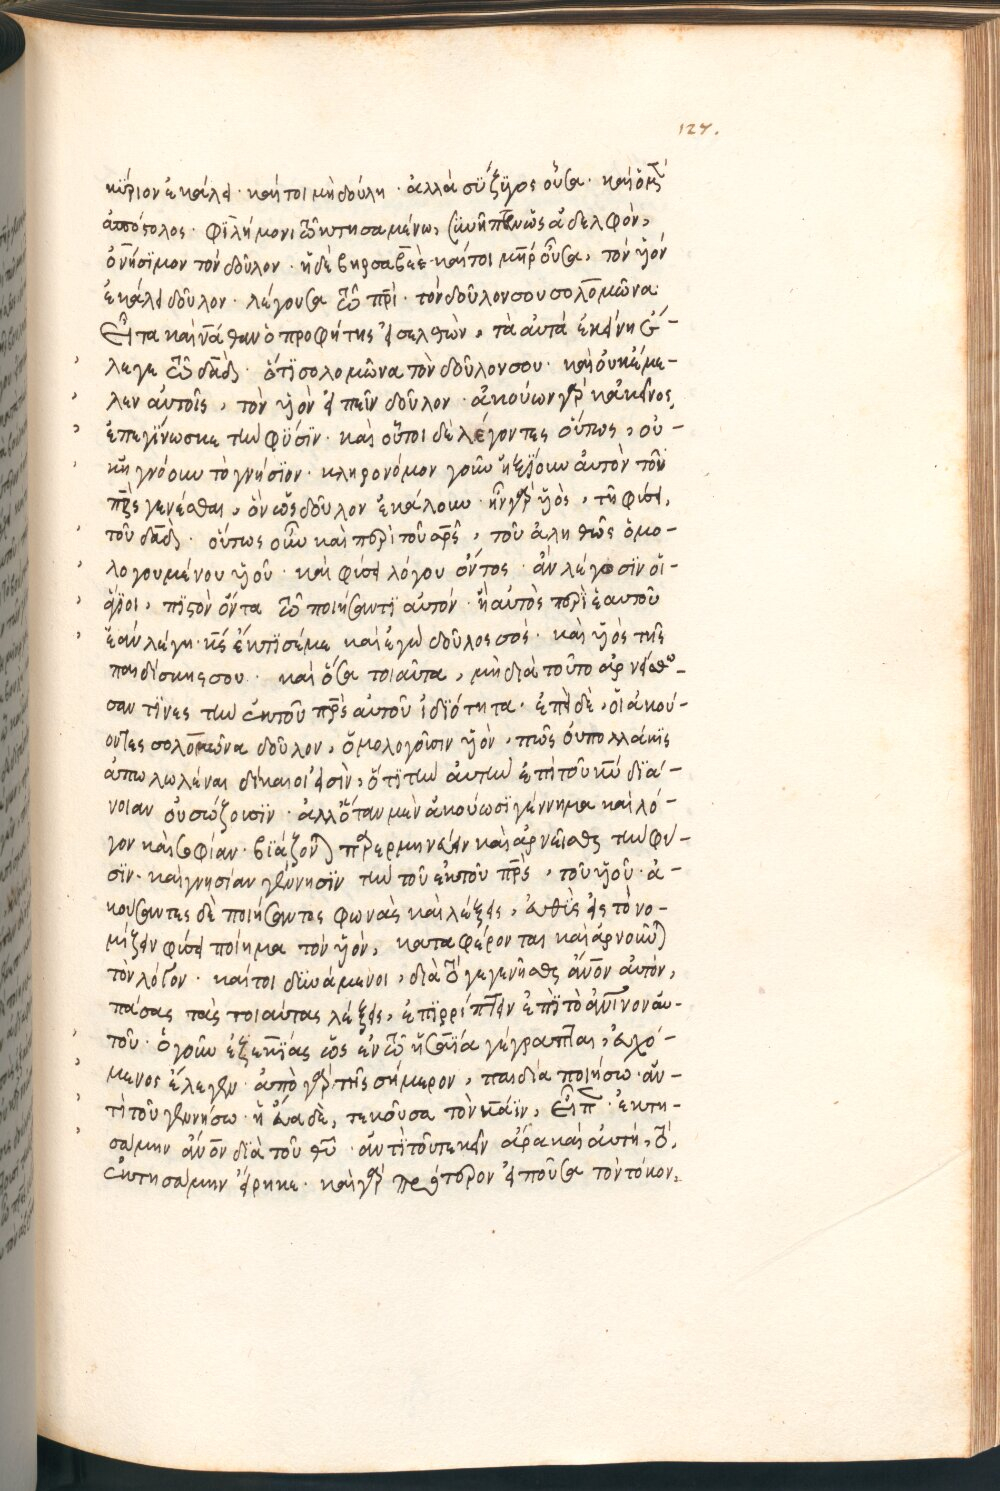 127.
κύριον ἐκάλει· καίτοι μὴ δούλη· ἀλλὰ σύζυγος οὖσα· καὶ ὁ μ̅
ἀπόστολος· φιλήμονι τῶ κτησαμένω, συνῆπτεν ὡς ἀδελφὸν,
ὀνήσιμον τὸν δοῦλον· ἡ δὲ βηρσαβεὲ καίτοι μη̅ρ οὖσα, τὸν υἱὸν
ἐκάλει δοῦλον· λέγουσα τῶ πρι̅· τὸν δοῦλόν σου σολομῶνα·
Εἶτα καὶ νάθαν ὁ προφήτης εἰσελθὼν, τὰ αὐτὰ ἐκείνη ἔ-
λεγε τῶ δαδ̅· ὅτι σολομῶνα τὸν δοῦλόν σου· καὶ οὐκ ἔμε-
λεν αὐτοῖς, τὸν υἱὸν εἰπεῖν δοῦλον· ἀκούων γὰρ κἀκεῖνος,
ἐπεγίνωσκε τὴν φύσιν· καὶ οὗτοι δὲ λέγοντες οὕτως, οὐ-
κ ἠγνόουν τὸ γνήσιον· κληρονόμον γοῦν ἠξίουν αὐτὸν τοῦ
πρ̅ς γενέσθαι, ὃν ὡς δοῦλον ἐκάλουν· ἦν γὰρ υἱὸς, τῆ φύσει,
τοῦ δαδ̅· οὕτως οὖν καὶ περὶ τοῦ πρ̅ς, τοῦ ἀληθῶς ὁμο-
λογουμένου υἱοῦ· καὶ φύσει λόγου ὄντος· ἂν λέγωσιν οἱ
ἅγιοι, πιστὸν ὄντα τῶ ποιήσαντι αὐτόν· ἢ αὐτὸς περὶ ἑαυτοῦ
ἐὰν λέγη· κς̅ ἔκτισέ με καὶ ἐγὼ δοῦλος σὸς· καὶ υἱὸς τῆς
παιδίσκης σου· καὶ ὅσα τοιαῦτα, μὴ διὰ τοῦτο ἀρνείσθω-
σαν τινες τὴν ἐκ τοῦ πρ̅ς αὐτοῦ ἰδιότητα· ἐπεὶ δὲ, οἱ ἀκού-
οντες σολομῶνα δοῦλον, ὁμολογοῦσιν υἱὸν, πῶς οὐ πολλάκις
ἀπολωλέναι δίκαιοί εἰσὶν, ὅτι τὴν αὐτὴν ἐπὶ τοῦ κυ̅ διά-
νοιαν οὐ σώζουσιν· ἀλλ' ὅταν μὲν ἀκούωσι γέννημα καὶ λό-
γον καὶ σοφίαν· βιάζονται παρερμηνεύειν καὶ ἀρνεῖσθαι τὴν φύ-
σιν· καὶ γνησίαν γέννησιν τὴν τοῦ ἐκ τοῦ πρ̅ς, τοῦ υἱοῦ· ἀ-
κούσαντες δὲ ποιήσαντος φωνὰς καὶ λέξεις, εὐθὺς εἰς τὸ νο-
μίζειν φύσει ποίημα τὸν υἱὸν, καταφέρονται καὶ ἀρνοῦνται
τὸν λόγον· καίτοι δυνάμενοι, διὰ τὸ γεγενῆσθαι ἄνον̅ αὐτὸν,
πάσας τὰς τοιαύτας λέξεις, ἐπιρρίπτειν ἐπὶ τὸ ἀνι̅νον αὐ-
τοῦ· ὁ γοῦν ἐξεκίας ὡς ἐν τῶ ἡσαΐα γέγραπται, εὐχό-
μενος ἔλεγεν· ἀπὸ γὰρ τῆς σήμερον, παιδία ποιήσω· ἀν-
τὶ τοῦ γεννήσω· ἡ εὔα δὲ, τεκοῦσα τὸν κάϊν, εἶπ· ἐκτη-
σάμην ἄνον̅ διὰ τοῦ θυ̅· ἀντὶ τοῦ τεκεῖν ἄρα καὶ αὐτὴ, τὸ,
ἐκτησάμην εἴρηκε· καὶ γὰρ πρότερον εἰποῦσα τὸν τόκον,